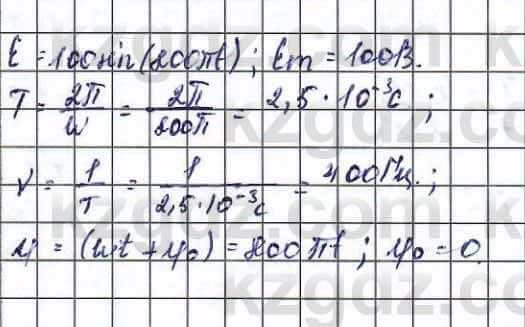 ε = 100 sin(800πt); εm = 100В.
T = 2π/ω = 2π/800π = 2,5 · 10⁻³ с;
ν = 1/T = 1/2,5·10⁻³с = 400 Гц.;
φ = (ωt + φ₀) = 800πt; φ₀ = 0.